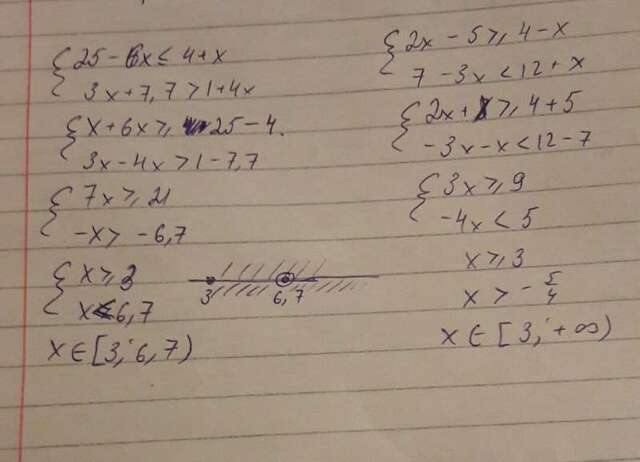 25 - 6x ≤ 4 + x
3x + 7,7 > 1 + 4x
x + 6x ≥ 25 - 4.
3x - 4x > 1 - 7,7
7x ≥ 21
-x > -6,7
x ≥ 3
x < 6,7
3 6,7
x ∈ [3; 6,7)
2x - 5 ≥ 4 - x
7 - 3x < 12 + x
2x + x ≥ 4 + 5
-3x - x < 12 - 7
3x ≥ 9
-4x < 5
x ≥ 3
x > -5/4
x ∈ [3; +∞)